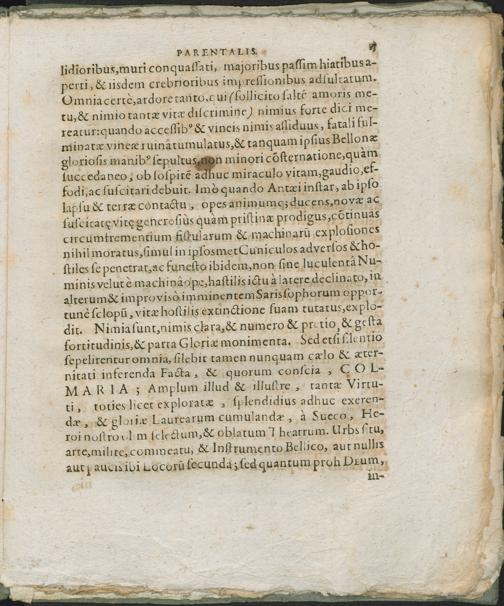 PARENTALIS.
lidioribus, muri conquassati, majoribus passim hiatibus a-
perti, & iisdem crebrioribus impressionibus adsultatum.
Omnia certè, ardore tanto, qui (sollicito saltẽ amoris me-
tu, & nimio tantæ vitæ discrimine) nimius forte dici me-
reatur: quando accessibꝰ & vineis nimis assiduus, fatali ful-
minatæ vineæ ruinâ tumulatus, & tanquam ipsius Bellonæ
gloriosis manibꝰ sepultus, non minori cõsternatione, quàm
succedaneo, ob sospitẽ adhuc miraculo vitam, gaudio, ef-
fodi, ac suscitari debuit. Imò quando Antæi instar, ab ipso
lapsu & terræ contactu, opes animumq; ducens, novæ ac
suscitatę vitę generosiùs quàm pristinæ prodigus, cõtinuas
circumfrementium fistularum & machinarũ explosiones
nihil moratus, simul in ipsosmet Cuniculos adversos & ho-
stiles se penetrat, ac funesto ibidem, non sine luculentâ Nu-
minis velut è machinâ ope, hastilis ictu à latere declinato, in
alterum & improvisò imminentem Sarissophorum oppor-
tunè sclopũ, vitæ hostilis extinctione suam tutatus, explo-
dit. Nimia sunt, nimis clara, & numero & pretio, & gesta
fortitudinis, & parta Gloriæ monimenta. Sed etsi silentio
sepelirentur omnia, silebit tamen nunquam cælo & æter-
nitati inferenda Facta, & quorum conscia, COL-
MARIA; Amplum illud & illustre, tantæ Virtu-
ti, toties licet exploratæ, splendidius adhuc exeren-
dæ, & gloriæ Laurearum cumulandæ, à Sueco, He-
roi nostro selectum, & oblatum Theatrum. Urbs situ,
arte, milite, commeatu, & Instrumento Bellico, aut nullis
aut paucis ibi Locorũ secunda; sed quantum proh Deum,
in-